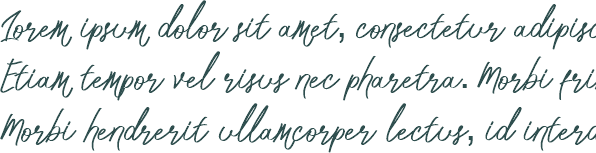 Lorem ipsum dolor sit amet, consectetur adipisc
Etiam tempor vel risus nec pharetra. Morbi fri
Morbi hendrerit ullamcorper lectus, id interd